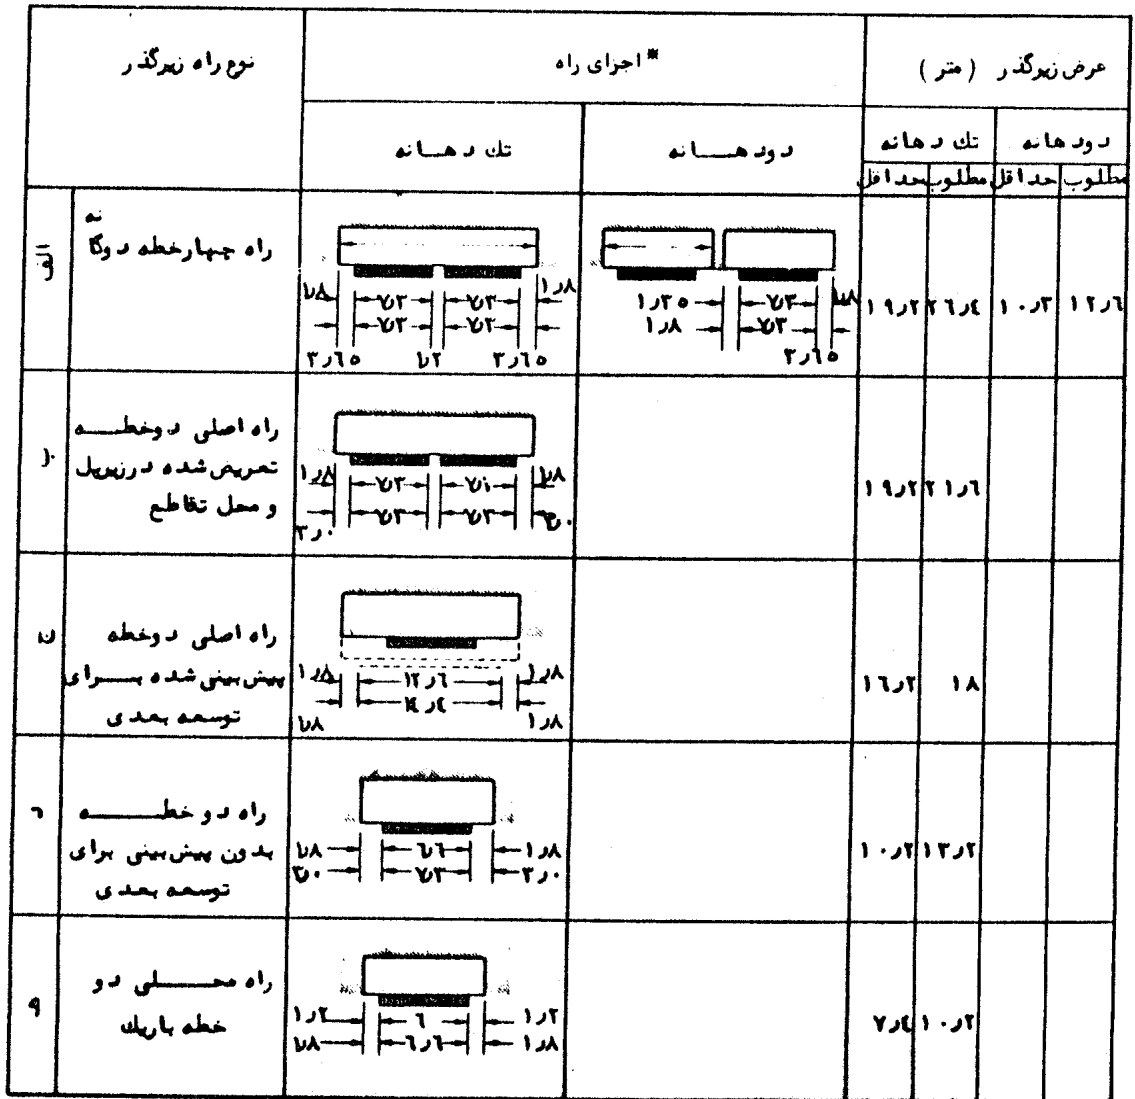 نوع راه زیرگذر
* اجزای راه
عرض زیرگذر ( متر )
تك دهانه
دودهانه
تك دهانه
دودهانه
حداقل
مطلوب
حداقل
مطلوب
الف
راه چهارخطه دوگانه
۱٫۸ ۷٫۳ ۷٫۳ ۱٫۸
۷٫۳ ۷٫۳
۳٫۶۵ ۱٫۲ ۳٫۶۵
۱٫۲۵ ۷٫۳ ۱٫۸
۱٫۸ ۷٫۳
۳٫۶۵
۱۹٫۲
۲۶٫٤
۱۰٫۳
۱۲٫۶
ب
راه اصلی دوخطه
تعریض شده در زیرپل
و محل تقاطع
۱٫۸ ۷٫۳ ۱٫۸
۷٫۳ ۷٫۳ ۳٫۰
۳٫۰
۱۹٫۲
۲۱٫۶
راه اصلی دوخطه
پیش بینی شده برای
توسعه بعدی
۱٫۸ ۱۲٫۶ ۱٫۸
۱٤٫٤
۱٫۸ ۱٫۸
۱۶٫۲
۱۸
راه دو خطه
بدون پیش بینی برای
توسعه بعدی
۱٫۸ ۶٫۶ ۱٫۸
۳٫۰ ۷٫۳ ۳٫۰
۱۰٫۲
۱۳٫۲
راه محلی دو
خطه باریك
۱٫۲ ۶ ۱٫۲
۱٫۸ ۶٫۶ ۱٫۸
۷٫٤
۱۰٫۲